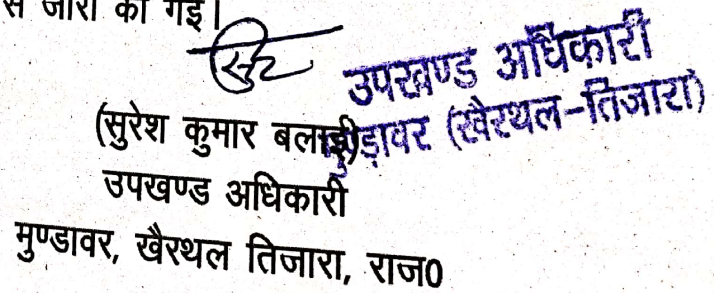 से जारी की गई।
उपखण्ड अधिकारी
मुण्डावर (खैरथल-तिजारा)
(सुरेश कुमार बलाई)
उपखण्ड अधिकारी
मुण्डावर, खैरथल तिजारा, राज0